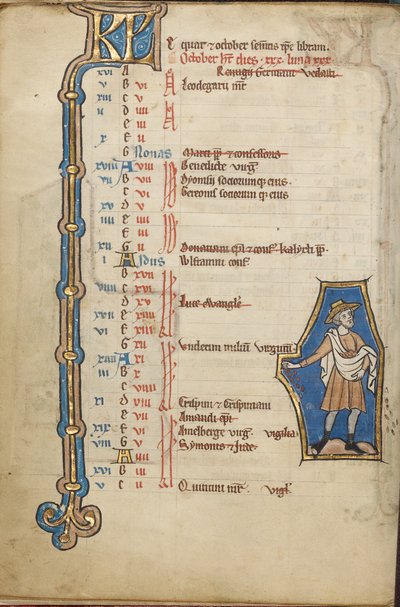 KL
quat & october libram.
October ht dies xxx luna xxx
xvi A Remigii Germani Vedasti
v B vi Leodegarii mr
xiii C v
ii D iiii
E iii
x F ii
G Nonas Marci pp & confessoris
xviii A viii Benedicte virg
vii B vii Dyonisii sociorumque eius.
C vi Gereonis sociorumque eius
xv D v
iiii E iiii
F iii
xii G ii Donatiani epi & conf Kalixti pp
i A Idus Wlfranni conf
B xvii
viiii C xvi
D xv Luce ewangliste
xvii E xiiii
vi F xiii
G xii Undecim milium virginum
xiiii A xi
iii B x
C viiii
xi D viii Crispini & Crispiniani
E vii Amandi epi
xix F vi Amelberge virg vigilia
viii G v Symonis & Jude
A iiii
xvi B iii
v C ii Quintini mr vigl